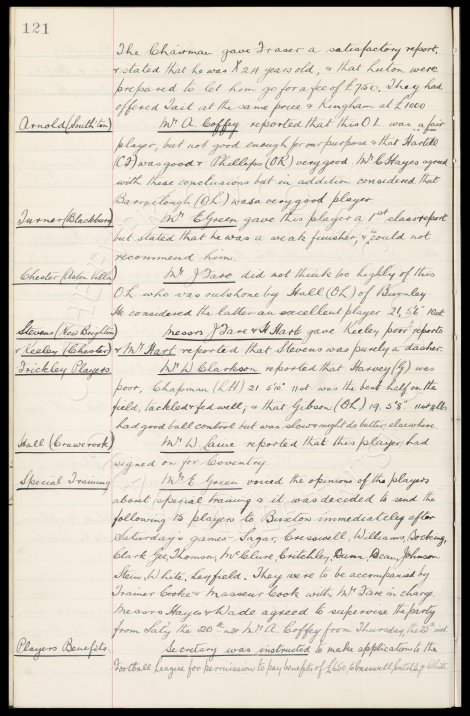 121
The Chairman gave Fraser a satisfactory report,
& stated that he was 24 years old, & that Luton were
prepared to let him go for a fee of £750. They had
offered Tait at the same price & Kingham at £1000
Arnold (South'ton) Mr A. Coffey reported that this O L was a fair
player, but not good enough for our purpose & that Hartill
(CF) was good & Phillips (OR) very good Mr C Hayes agreed
with these conclusions but in addition considered that
Barraclough (OL) was a very good player.
Turner (Blackburn) Mr E Green gave this player a 1st class report
but stated that he was a weak finisher, & could not
recommend him.
Chester (Aston Villa) Mr J Fare did not think too highly of this
OL who was outshone by Hall (OL) of Burnley
He considered the latter an excellent player 21, 5'6" 10st.
Stevens (New Brighton) Messrs J Fare & H Hart gave Keeley poor reports
& Keeley (Chester) & Mr Hart reported that Stevens was purely a dasher.
Frickley Players Mr W Clarkson reported that Harvey (G) was
poor, Chapman (LH) 21. 5'10" 11st was the best half on the
field, tackled & fed well; & that Gibson (OL) 19. 5'8"
had good ball control but was slow & might do better elsewhere
Hall (Crawcrook) Mr W. Laine reported that this player had
signed on for Coventry.
Special Training Mr E. Green voiced the opinions of the players
about special training & it was decided to send the
following 15 players to Buxton immediately after
Saturday's games- Sagar, Cresswell, Williams, Bocking,
Clark, Gee, Thomson, McClure, Critchley, Dunn, Dean, Johnson
Stein, White, Leyfield. They were to be accompanied by
Trainer Cooke & Masseur Cook with Mr Fare in charge
Messrs Hayes & Wade agreed to supervise the party
from Sat'y the 20th inst Mr A. Coffey from Thursday, the 25th inst.
Players Benefits. Secretary was instructed to make application to the
Football League for permission to pay benefits of £650, to Cresswell, Critchley, & White